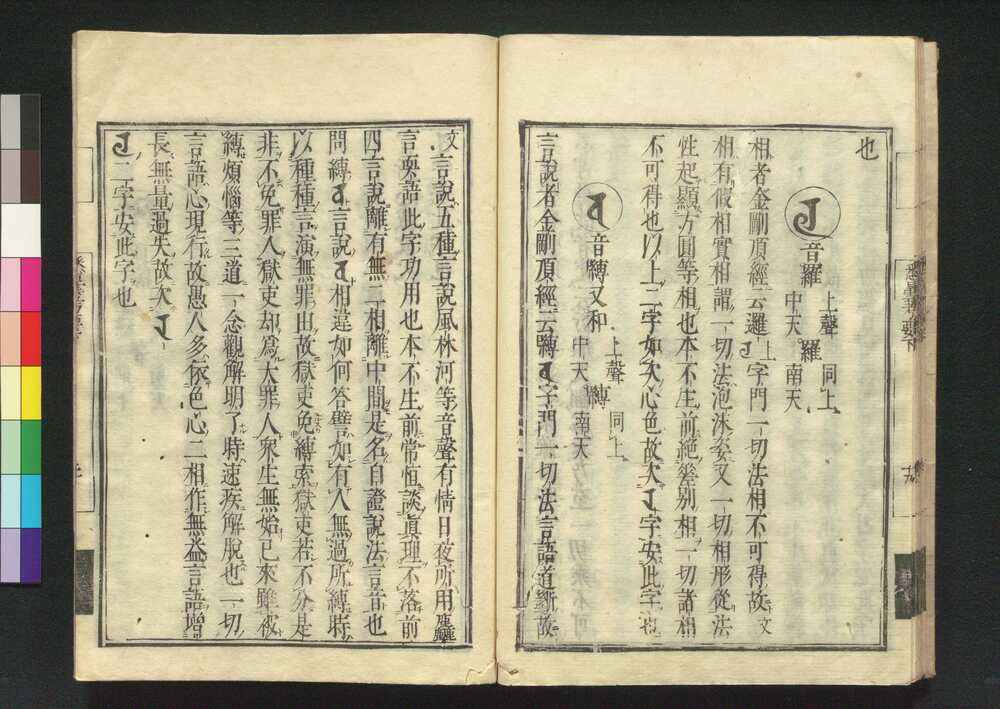 也
音羅 上聲 中天 羅 同上 南天
相者金剛頂經云邏上字門一切法相不可得故文
相有假相實相謂一切法泡沫姿又一切相形從法
性起顯方圓等相也本不生前絶差別相一切諸相
不可得也以上二字如次心色故次字安此字也
音嚩又和 上聲 中天 嚩 同上 南天
言說者金剛頂經云嚩字門一切法言語道斷故
文言說五種言說風林河等音聲有情日夜所用麁
言耎語此字功用也本不生前常恒談眞理不落前
四言說離有無二相離中間是名自證說法言音也
問縛言說相違如何答譬如有人無過所縛時
以種種言演無罪由故獄吏免縛索獄吏若不分是
非不免罪人獄吏却爲大罪人衆生無始已來雖被
縛煩惱等三道一念觀解明了時速疾解脫也一切
言語心現行故愚人多依色心二相作無益言語增
長無量過失故次
二字安此字也